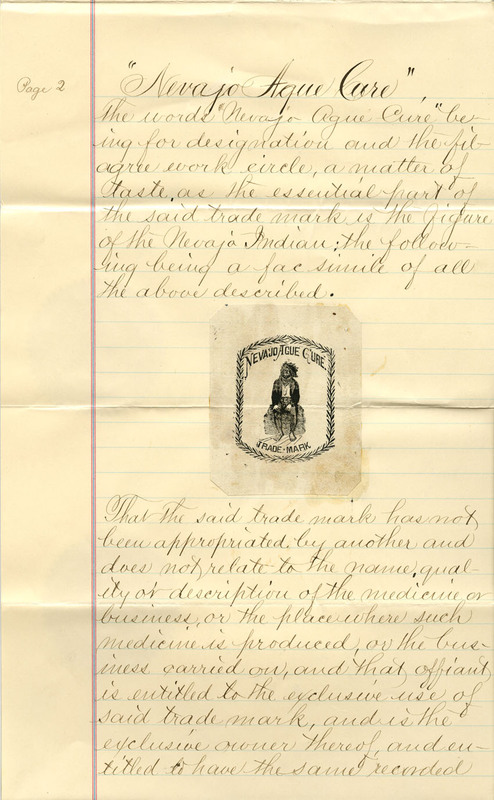 Page 2
"Nevajo Ague Cure",
The words "Nevajo Ague Cure" be-
ing for designation and the fil-
agree work circle, a matter of
taste, as the essential part of
the said trade mark is the figure
of the Nevajo Indian; the follow-
ing being a fac simile of all
the above described.
NEVAJO AGUE CURE
TRADE-MARK
That the said trade mark has not
been appropriated by another and
does not relate to the name, qual-
ity or description of the medicine or
business, or the place where such
medicine is produced, or the bus-
iness carried on, and that affiant
is entitled to the exclusive use of
said trade mark, and is the
exclusive owner thereof, and en-
titled to have the same recorded